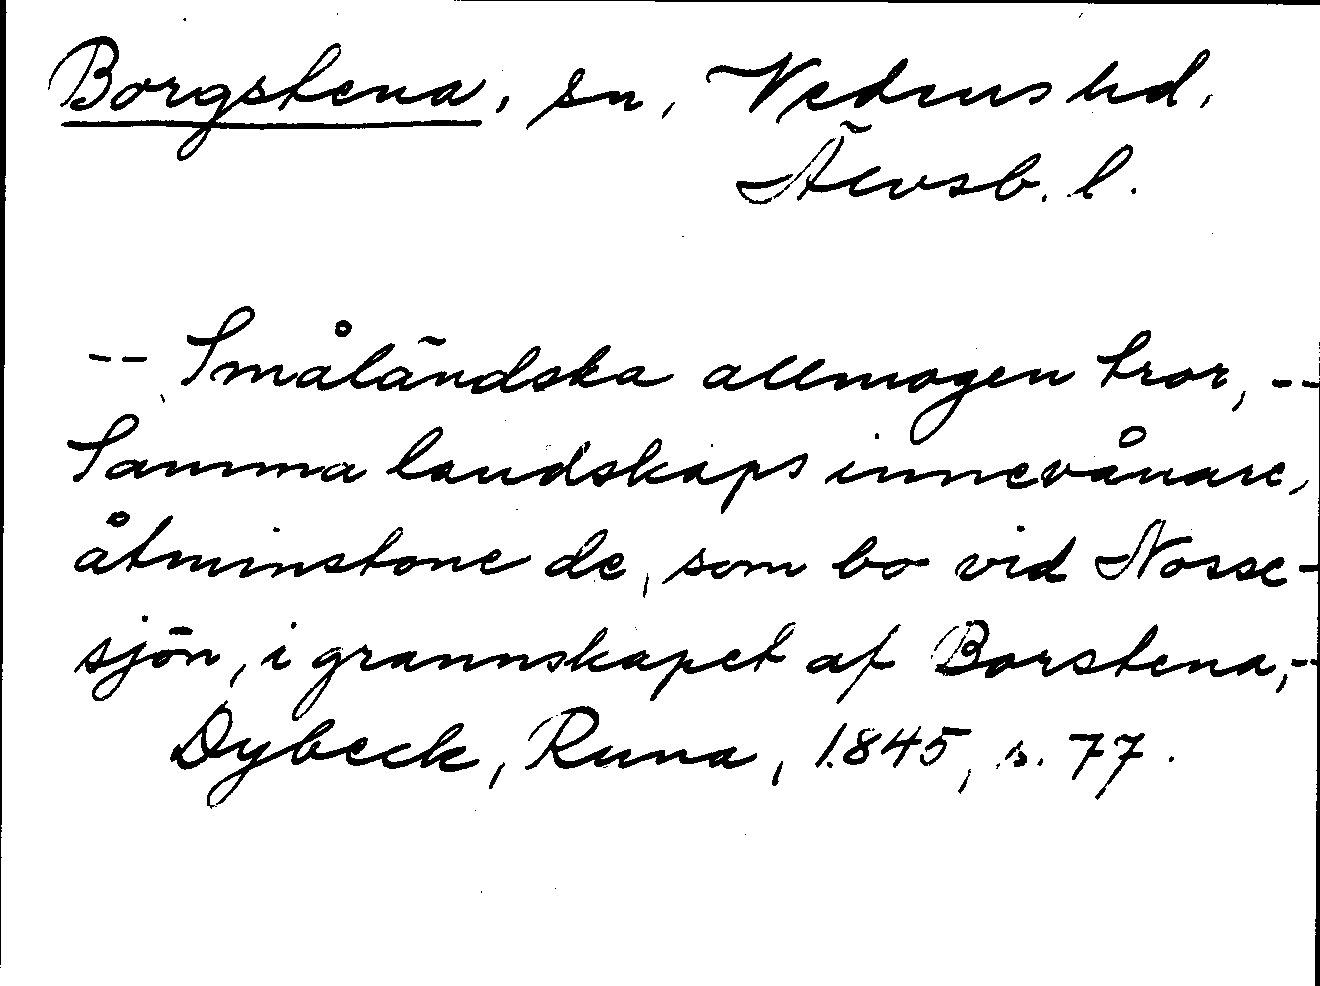 Borgstena, sn, Vedens hd,
Älvsb. l.
-- Småländska allmogen tror, --
Samma landskaps innevånare,
åtminstone de, som bo vid Nosse-
sjön, i grannskapet af Borstena,--
Dybeck, Runa, 1845, s. 77.